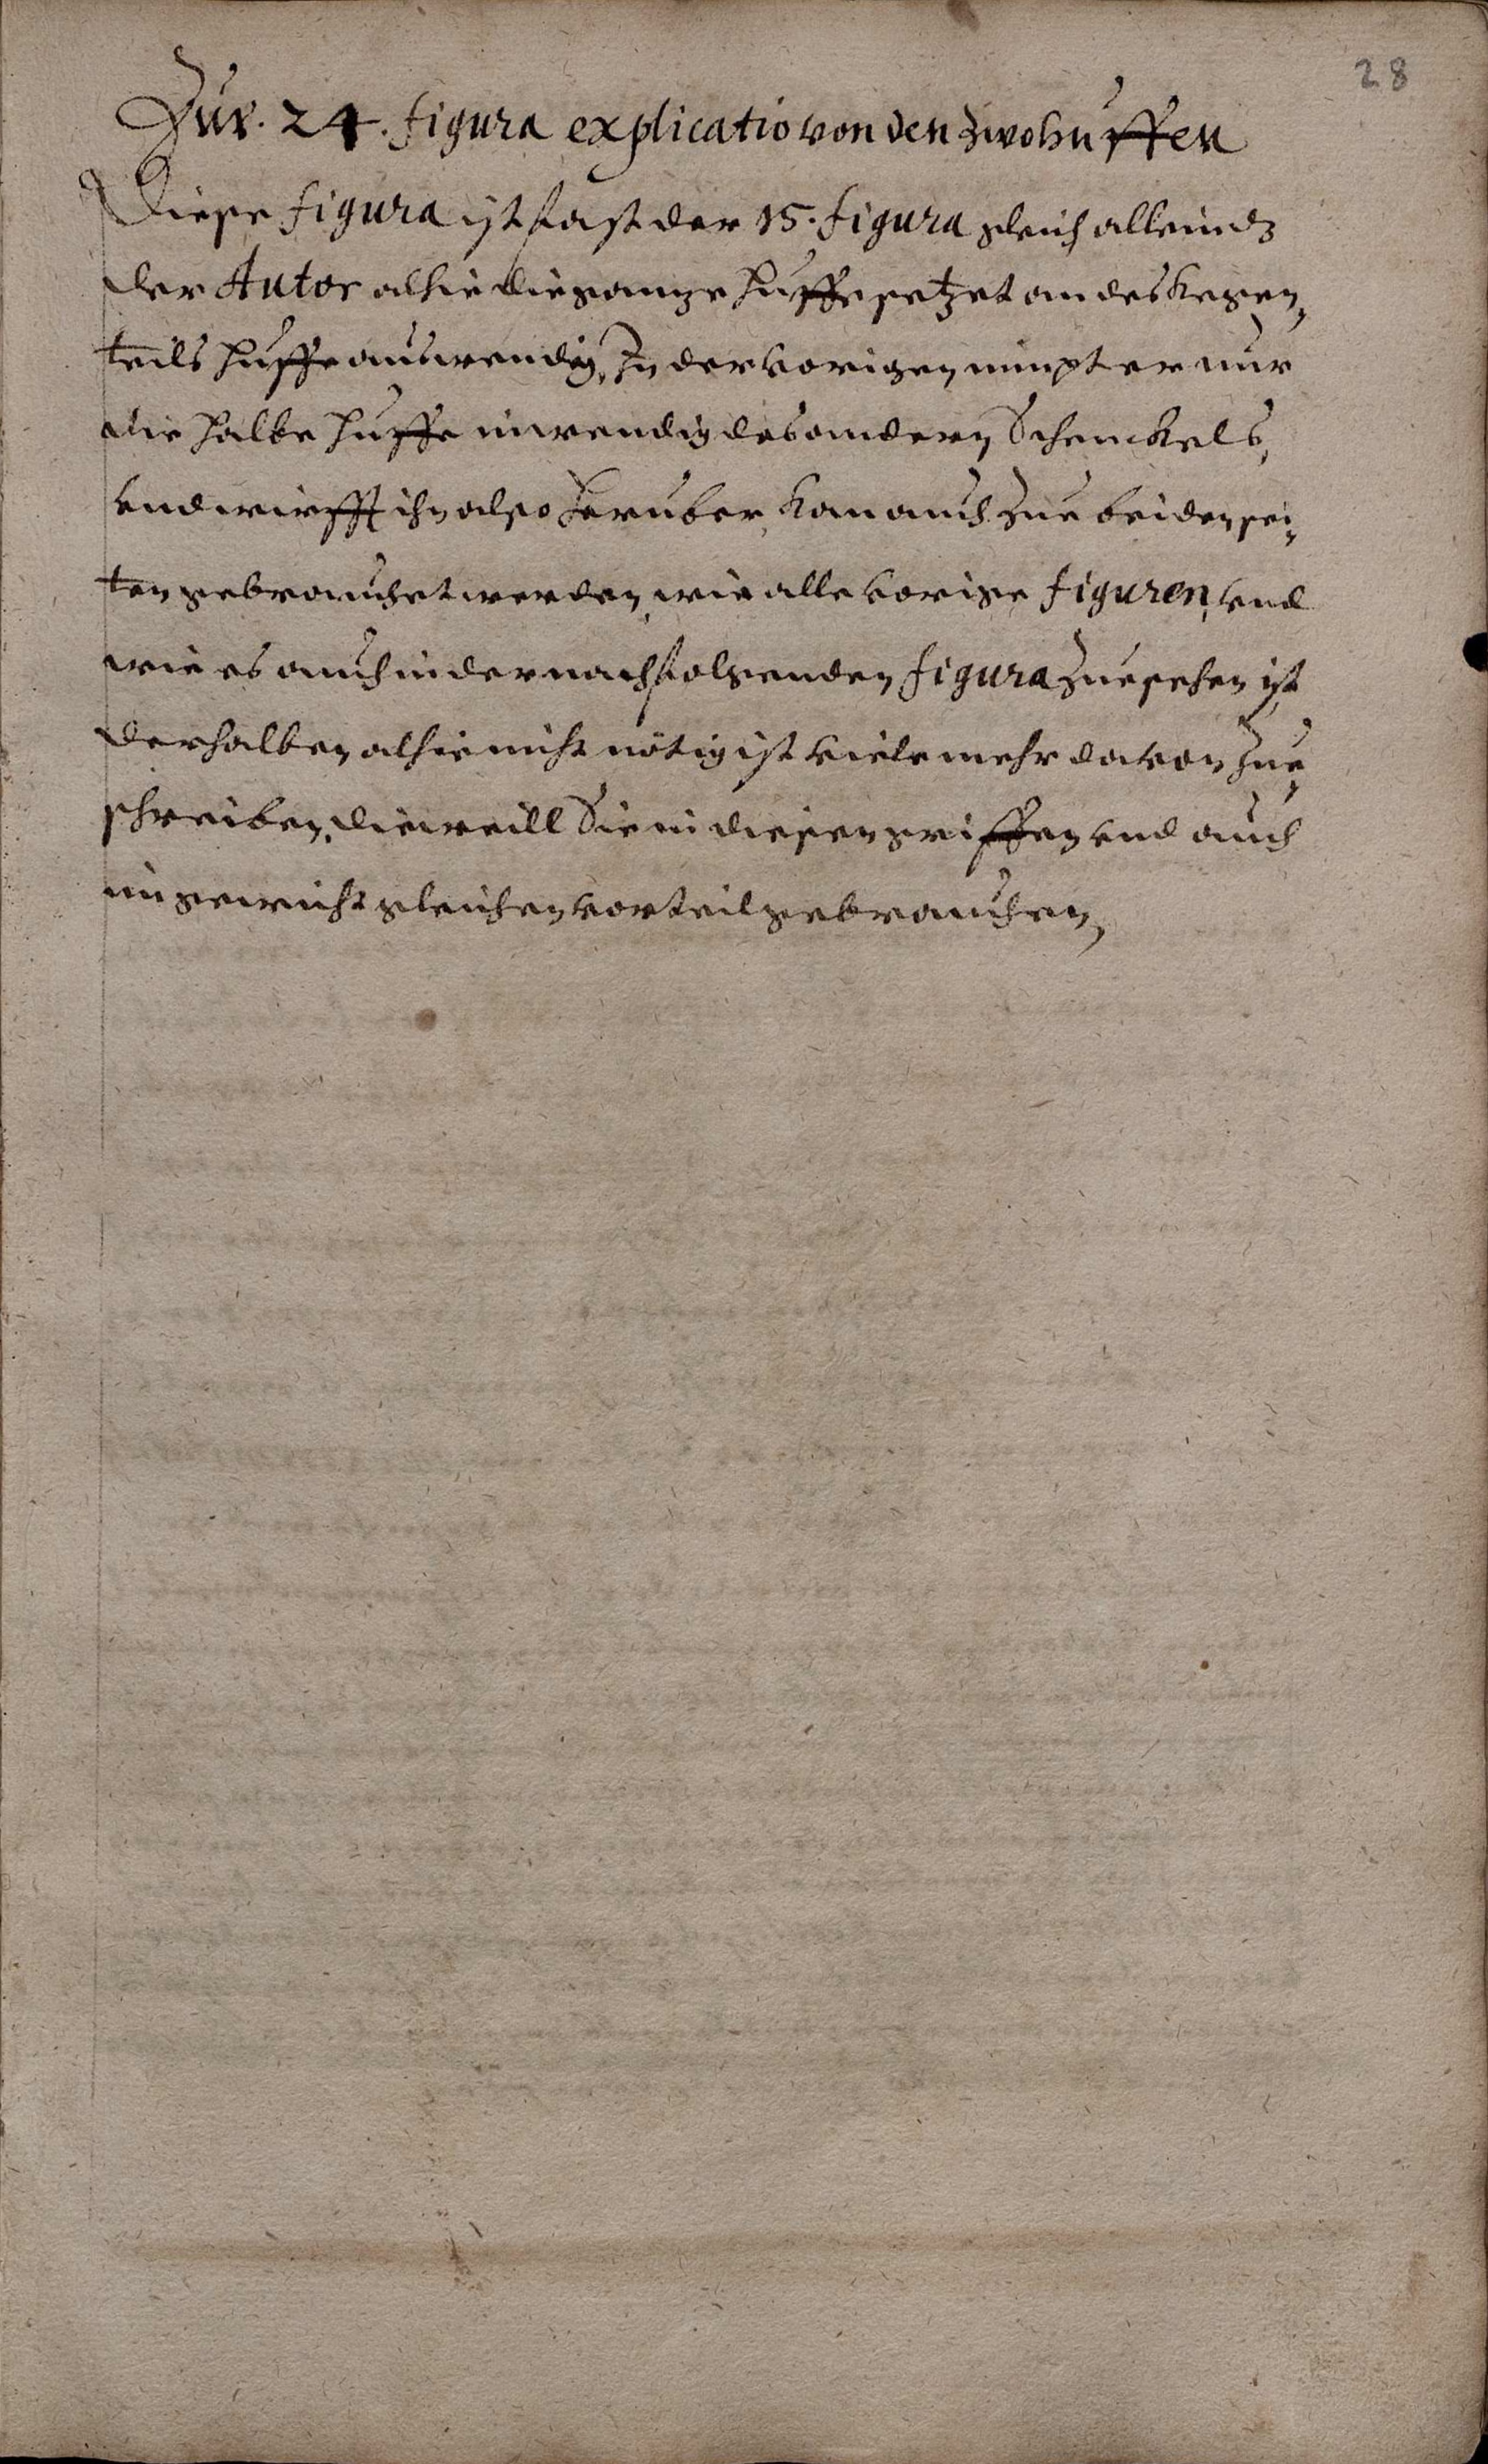 28
Zur. 24. figura explicatio von den zwo huffen
Diese figura ist fast der 15. figura gleich allein dz
der Autor alhie die ganze huffe setzet an des kegen,
teils huffe auswendig, In der vorigen nimpt er nur
die halbe huffe inwendig des andern Schenckels,
vnd wirfft ihn also heruber, kan auch zue beiden sei,
ten gebrauchet werden, wie alle vorige figuren, vnd
wie es auch in der nachfolgenden figura zue sehen ist
derhalben alhie nicht nötig ist viele mehr davon zue
schreiben, dieweill Sie in diesen griffen vnd auch
im gewicht gleichen vorteil gebrauchen,